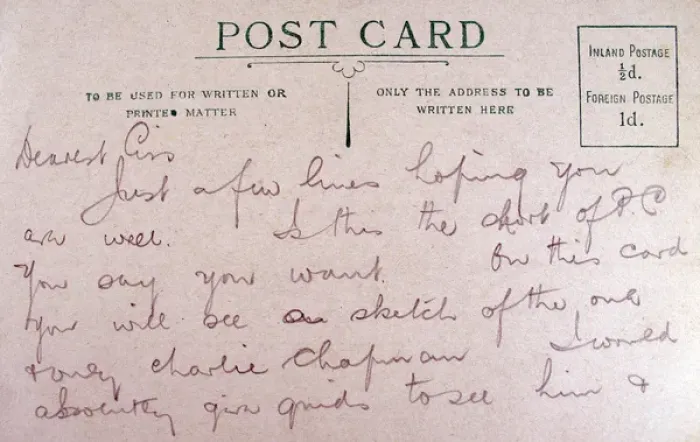 POST CARD
TO BE USED FOR WRITTEN OR
PRINTED MATTER
ONLY THE ADDRESS TO BE
WRITTEN HERE
INLAND POSTAGE
½d.
FOREIGN POSTAGE
1d.
Dearest Ciss
Just a few lines hoping you
are well. Is this the short of P.C
you say you want. On this card
you will see a sketch of the one
& only Charlie Chapman I would
absolutely give quids to see him &